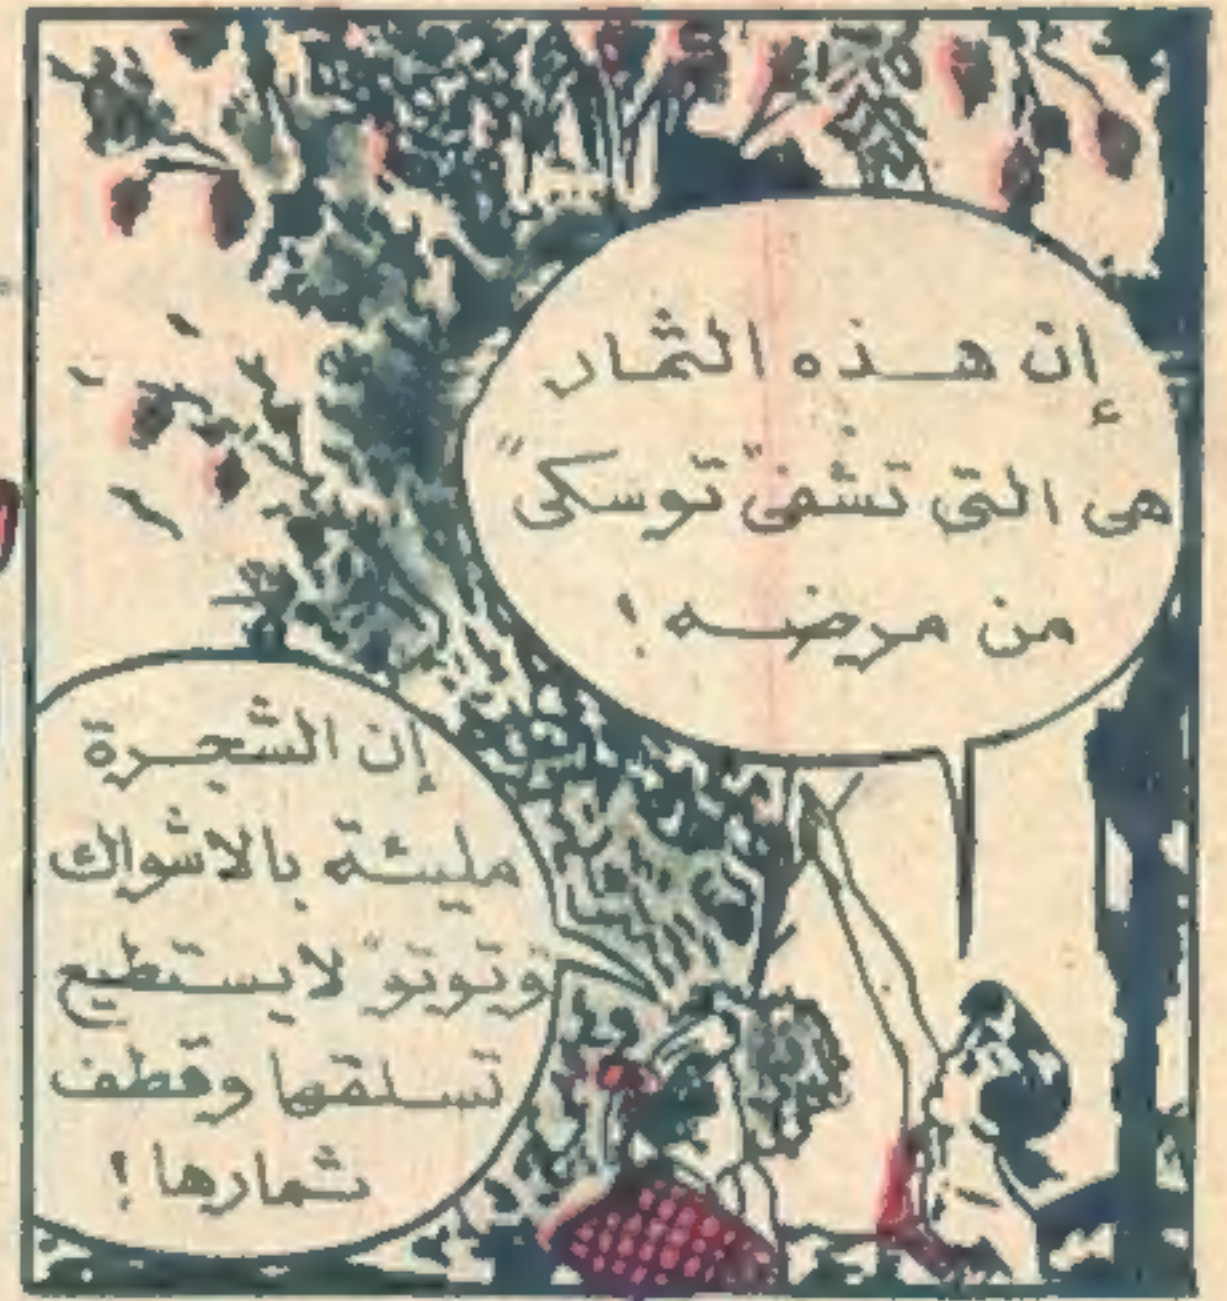 إن هذه الثمار
هى التى تشفى "توسكى"
من مرضه !
إن الشجرة
مليئة بالاشواك
و"توتو" لا يستطيع
تسلقها وقطف
ثمارها !